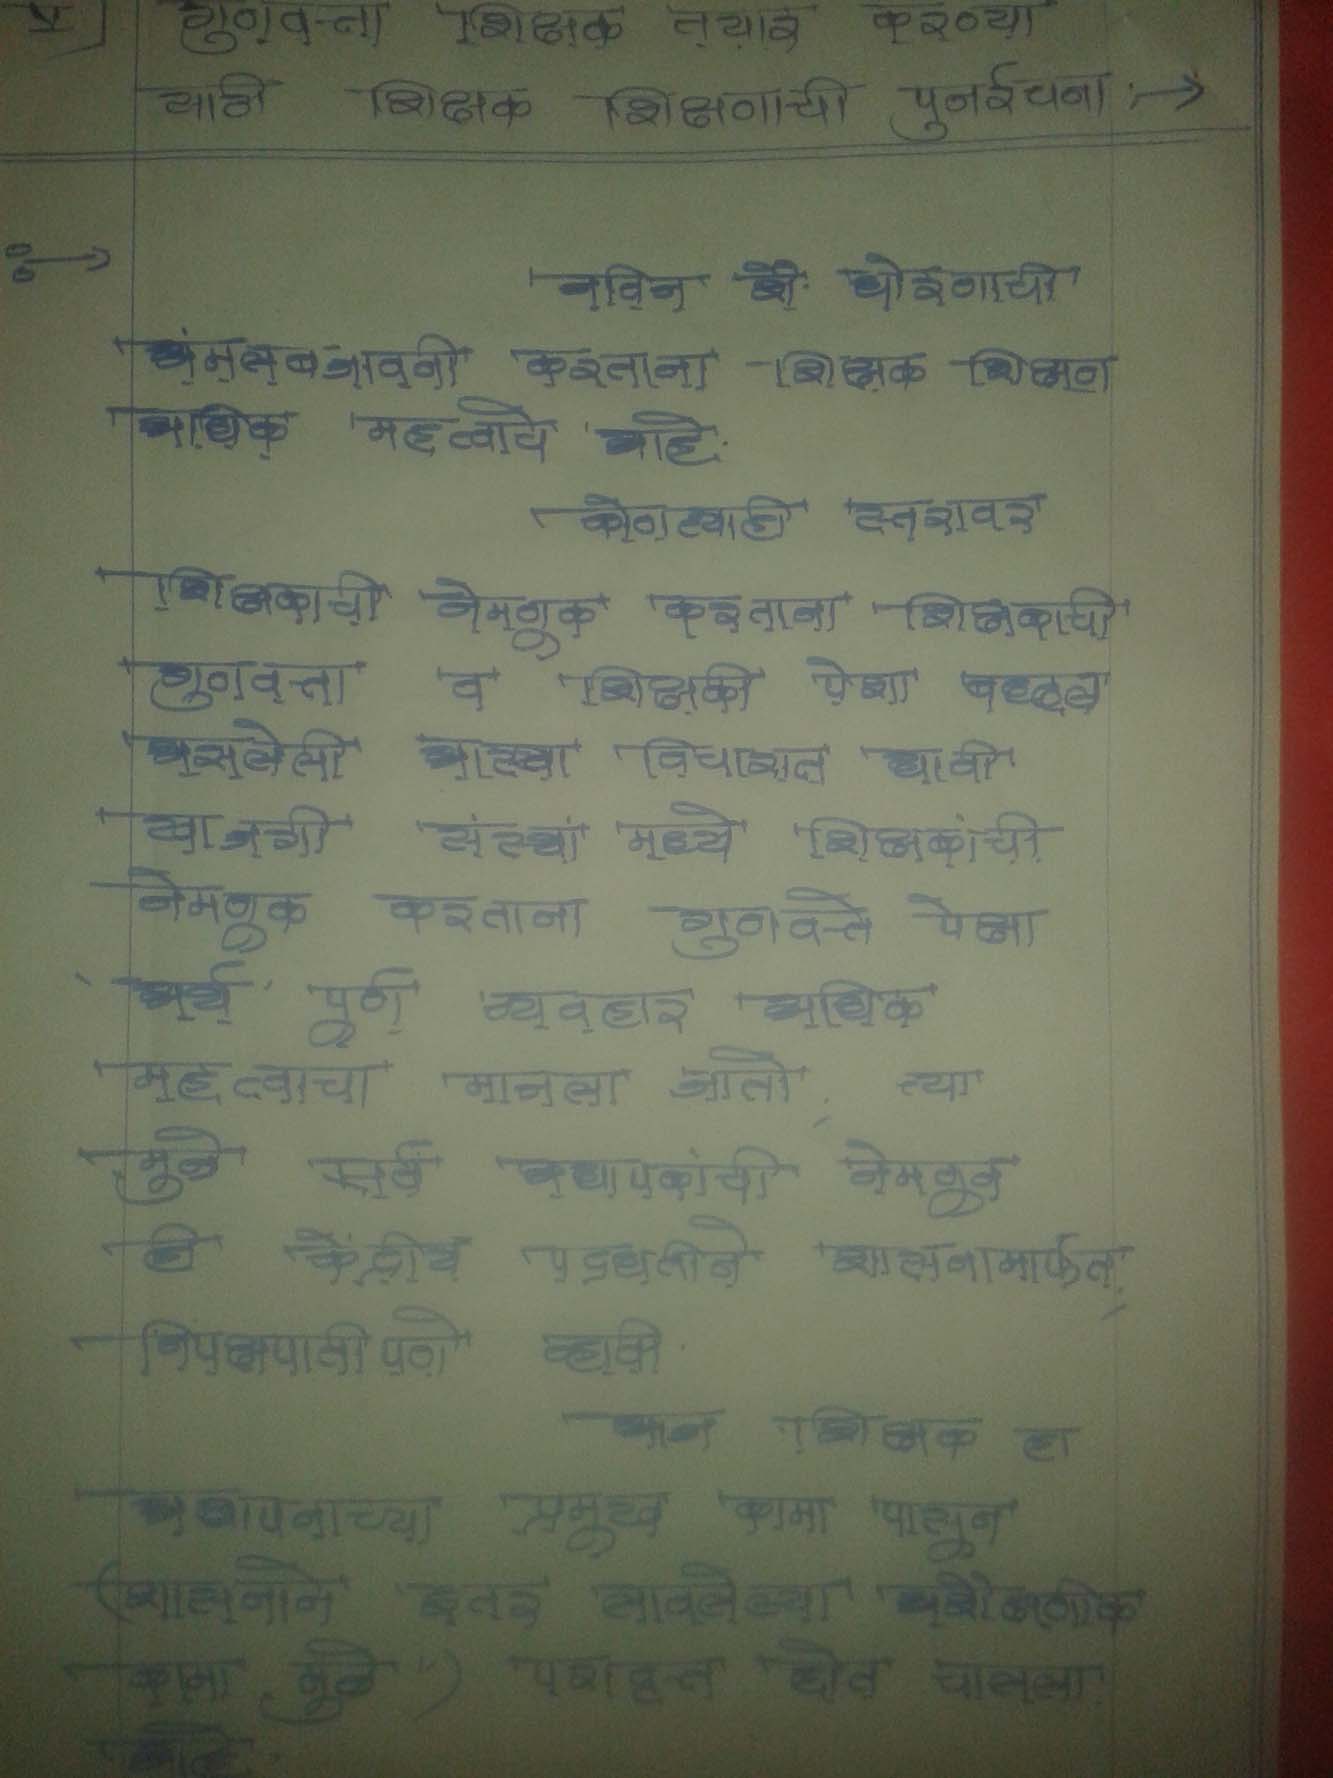 ५] गुणवत्ता शिक्षक तयार करण्या
साठी शिक्षक शिक्षणाची पुनर्रचना :→
→
नविन शै. धोरणाची
अंमलबजावनी करताना शिक्षक शिक्षण
अधिक महत्वाचे आहे.
कोणत्याही स्तरावर
शिक्षकाची नेमणूक करताना शिक्षकाची
गुणवत्ता व शिक्षकी पेशा बद्दल
असलेली आस्था विचारात घ्यावी
खाजगी संस्थां मध्ये शिक्षकांची
नेमणूक करताना गुणवत्ते पेक्षा
'अर्थ' पूर्ण व्यवहार अधिक
महत्वाचा मानला जातो, त्या
मुळे सर्व अध्यापकांची नेमणूक
ही केंद्रीय पद्धतीने शासनामार्फत,
निपक्षपातीपणे व्हावी.
आज शिक्षक हा
अध्यापनाच्या प्रमुख कामा पासून
(शासनाने इतर लावलेल्या अशैक्षणीक
कामा मुळे) परावृत्त होत चालला
आहे.